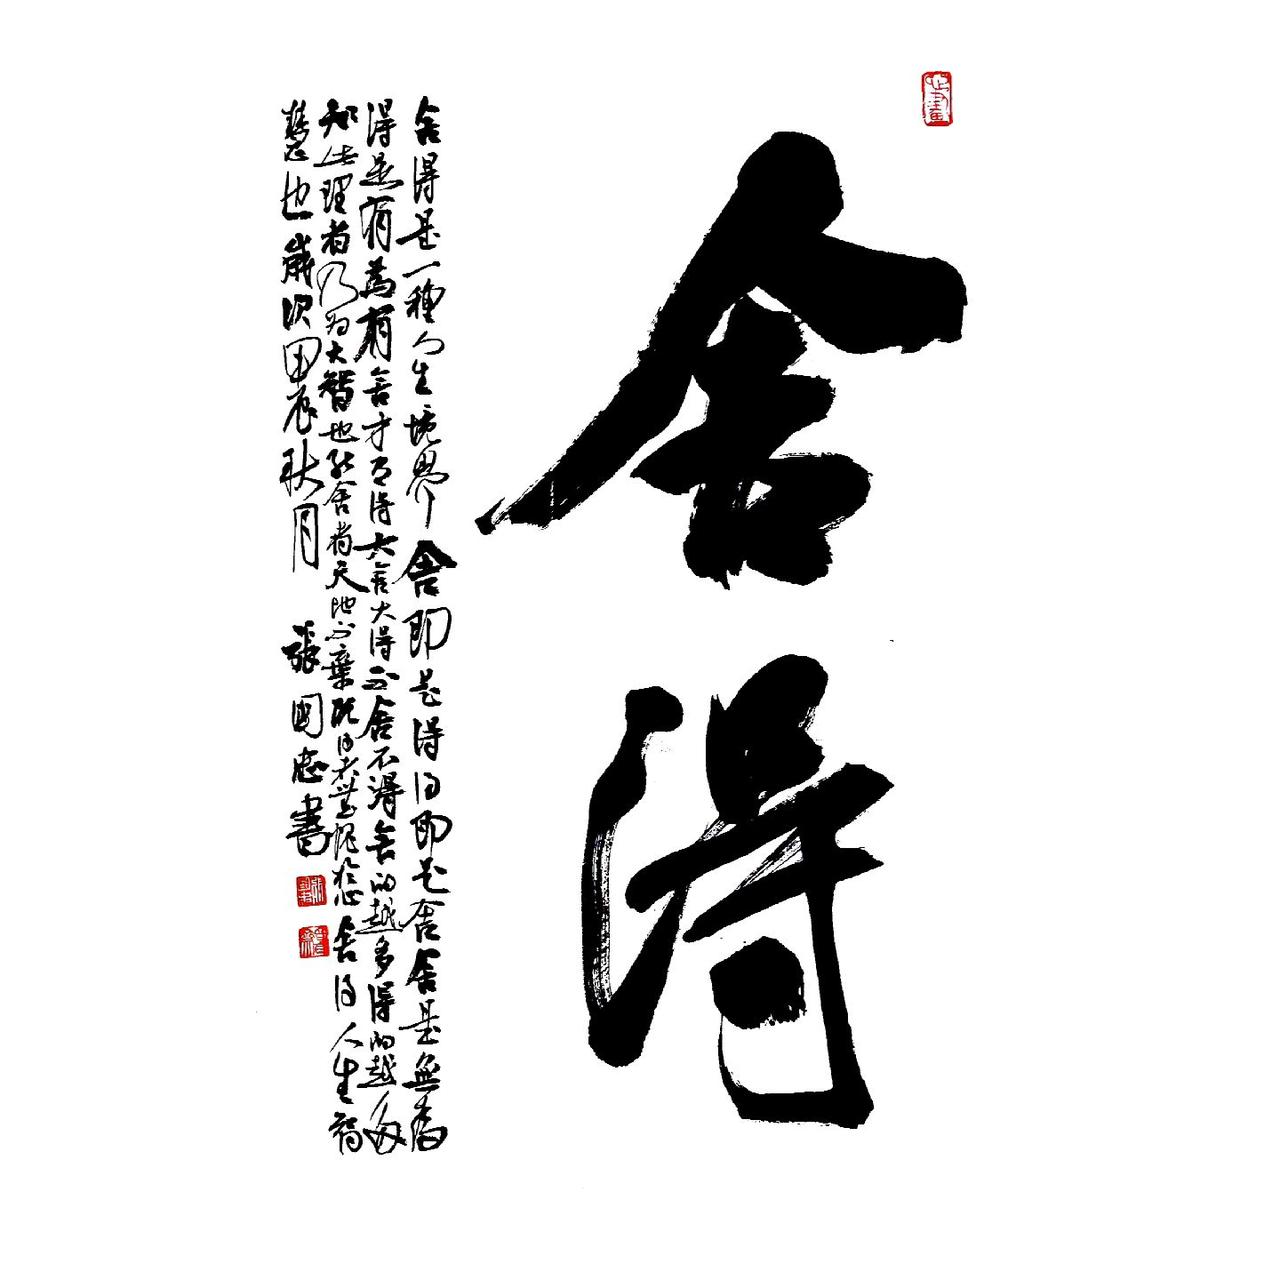 舍得
舍得是一種人生境界舍即是得得即是舍舍是無為
得是有為有舍才有得大舍大得不舍不得舍的越多得的越多
知此理者乃为大智也能舍者天地不棄 舍得人生福
慧也歲次甲辰秋月 張國志書